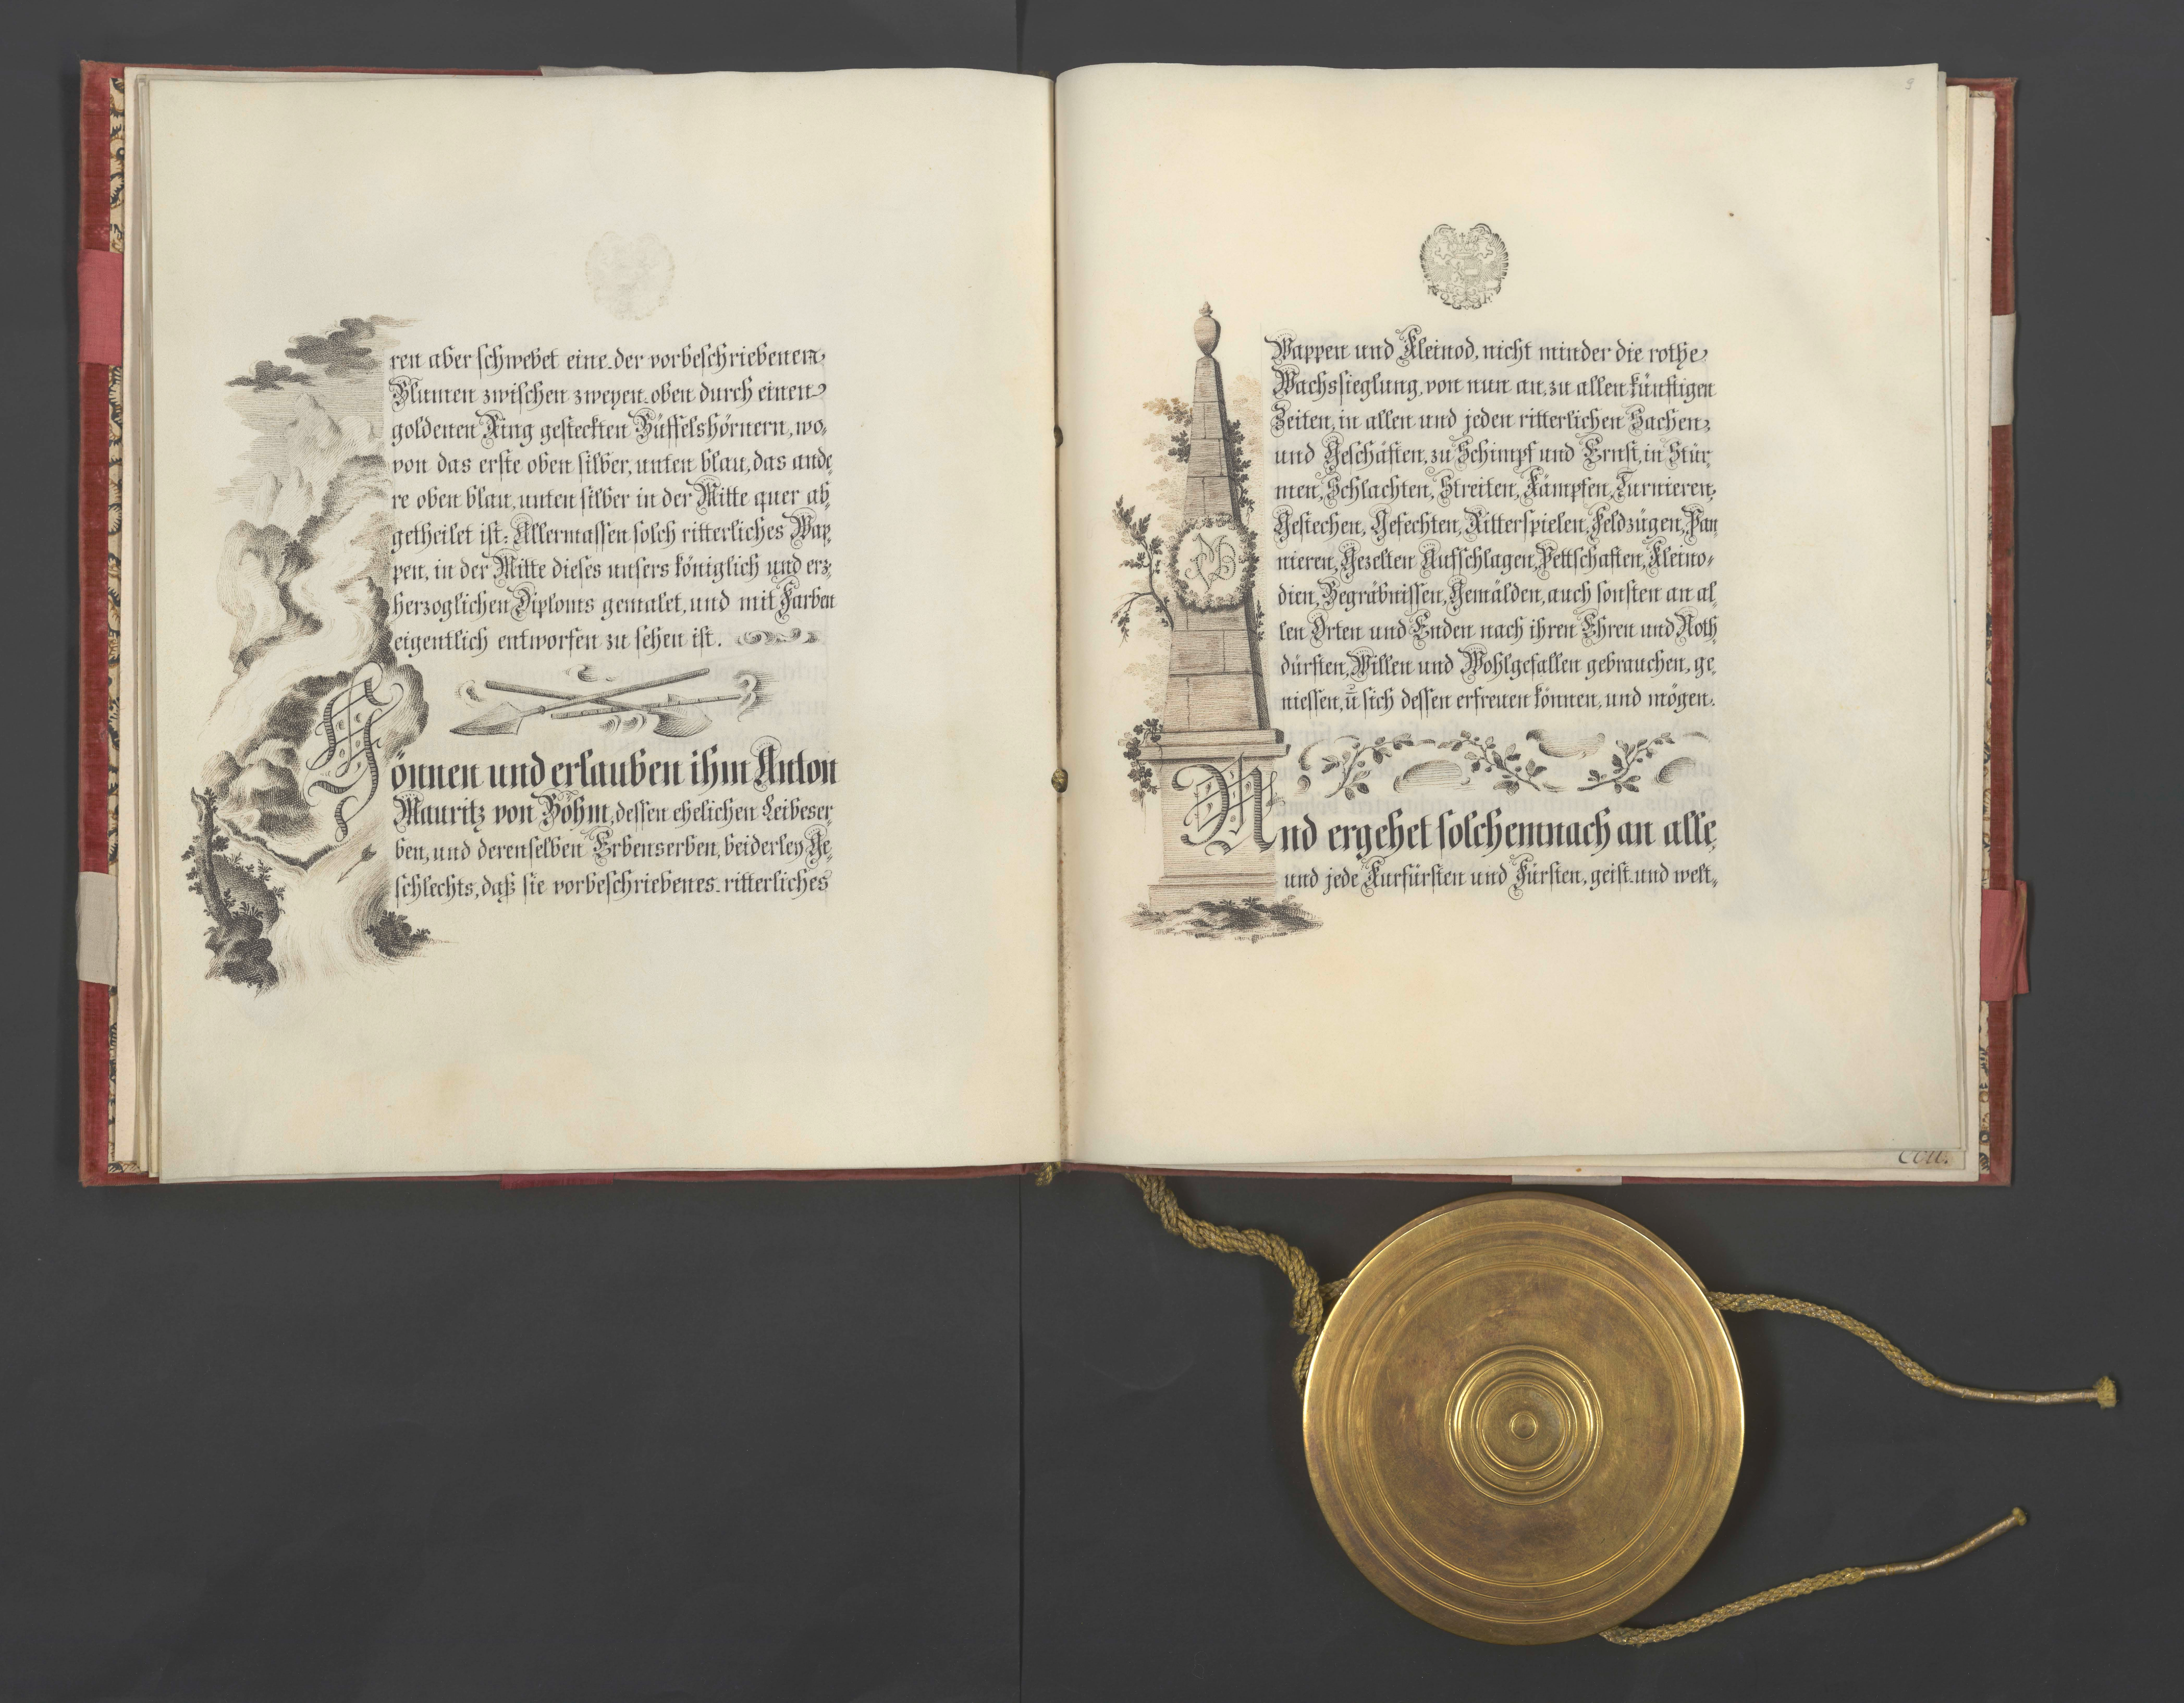 ren aber schwebet eine der vorbeschriebenen
Blumen zwischen zweyen oben durch einen
goldenen Ring gesteckten Büffelshörnern, wo-
von das erste oben silber, unten blau, das ande-
re oben blau, unten silber in der Mitte quer ab-
getheilet ist: Allermassen solch ritterliches Wap-
pen, in der Mitte dieses unsers königlich und erz-
herzoglichen Diploms gemalet, und mit Farben
eigentlich entworfen zu sehen ist.
Gönnen und erlauben ihm Anton
Mauritz von Böhm, dessen ehelichen Leibeser-
ben, und derenselben Erbenserben, beiderley Ge-
schlechts, daß sie vorbeschriebenes ritterliches
9
Wappen und Kleinod, nicht minder die rothe
Wachssieglung, von nun an, zu allen künftigen
Zeiten, in allen und jeden ritterlichen Sachen,
und Geschäften, zu Schimpf und Ernst, in Stür-
men, Schlachten, Streiten, Kämpfen, Turnieren,
Gestechen, Gefechten, Ritterspielen, Feldzügen, Pan-
nieren, Gezelten Aufschlagen, Pettschaften, Kleino-
dien, Begräbnissen, Gemälden, auch sonsten an al-
len Orten und Enden nach ihren Ehren und Noth-
dürften, Willen und Wohlgefallen gebrauchen, ge-
niessen, ū sich dessen erfreuen können, und mögen.
Und ergehet solchemnach an alle,
und jede Kurfürsten und Fürsten, geist- und welt-